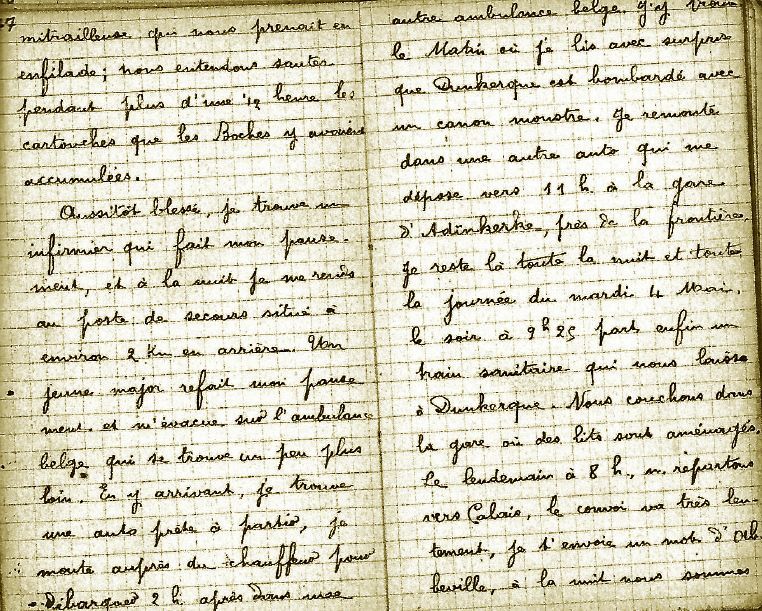 37
mitrailleuse qui nous prenait en
enfilade ; nous entendons sauter
pendant plus d'une 1/2 heure les
cartouches que les Boches y avaient
accumulées.
Aussitôt blessé, je trouve un
infirmier qui fait mon panse-
ment, et à la nuit je me rends
au poste de secours situé à
environ 2 Km en arrière. Un
jeune major refait mon panse
ment et m'évacue sur l'ambulance
belge qui se trouve un peu plus
loin. En y arrivant, je trouve
une auto prête à partir, je
monte auprès du chauffeur pour
débarquer 2 h. après dans une
autre ambulance belge. J'y trouve
le Matin où je lis avec surprise
que Dunkerque est bombardé avec
un canon monstre. Je remonte
dans une autre auto qui me
dépose vers 11 h. à la gare
d'Adinkerke, près de la frontière.
Je reste là toute la nuit et toute
la journée du mardi 4 Mai.
le soir à 9h25 part enfin un
train sanitaire qui nous laisse
à Dunkerque. Nous couchons dans
la gare où des lits sont aménagés.
Le lendemain à 8 h., n. repartons
vers Calais, le convoi va très len-
tement, je t'envoie un mot d'Ab
beville, à la nuit nous sommes